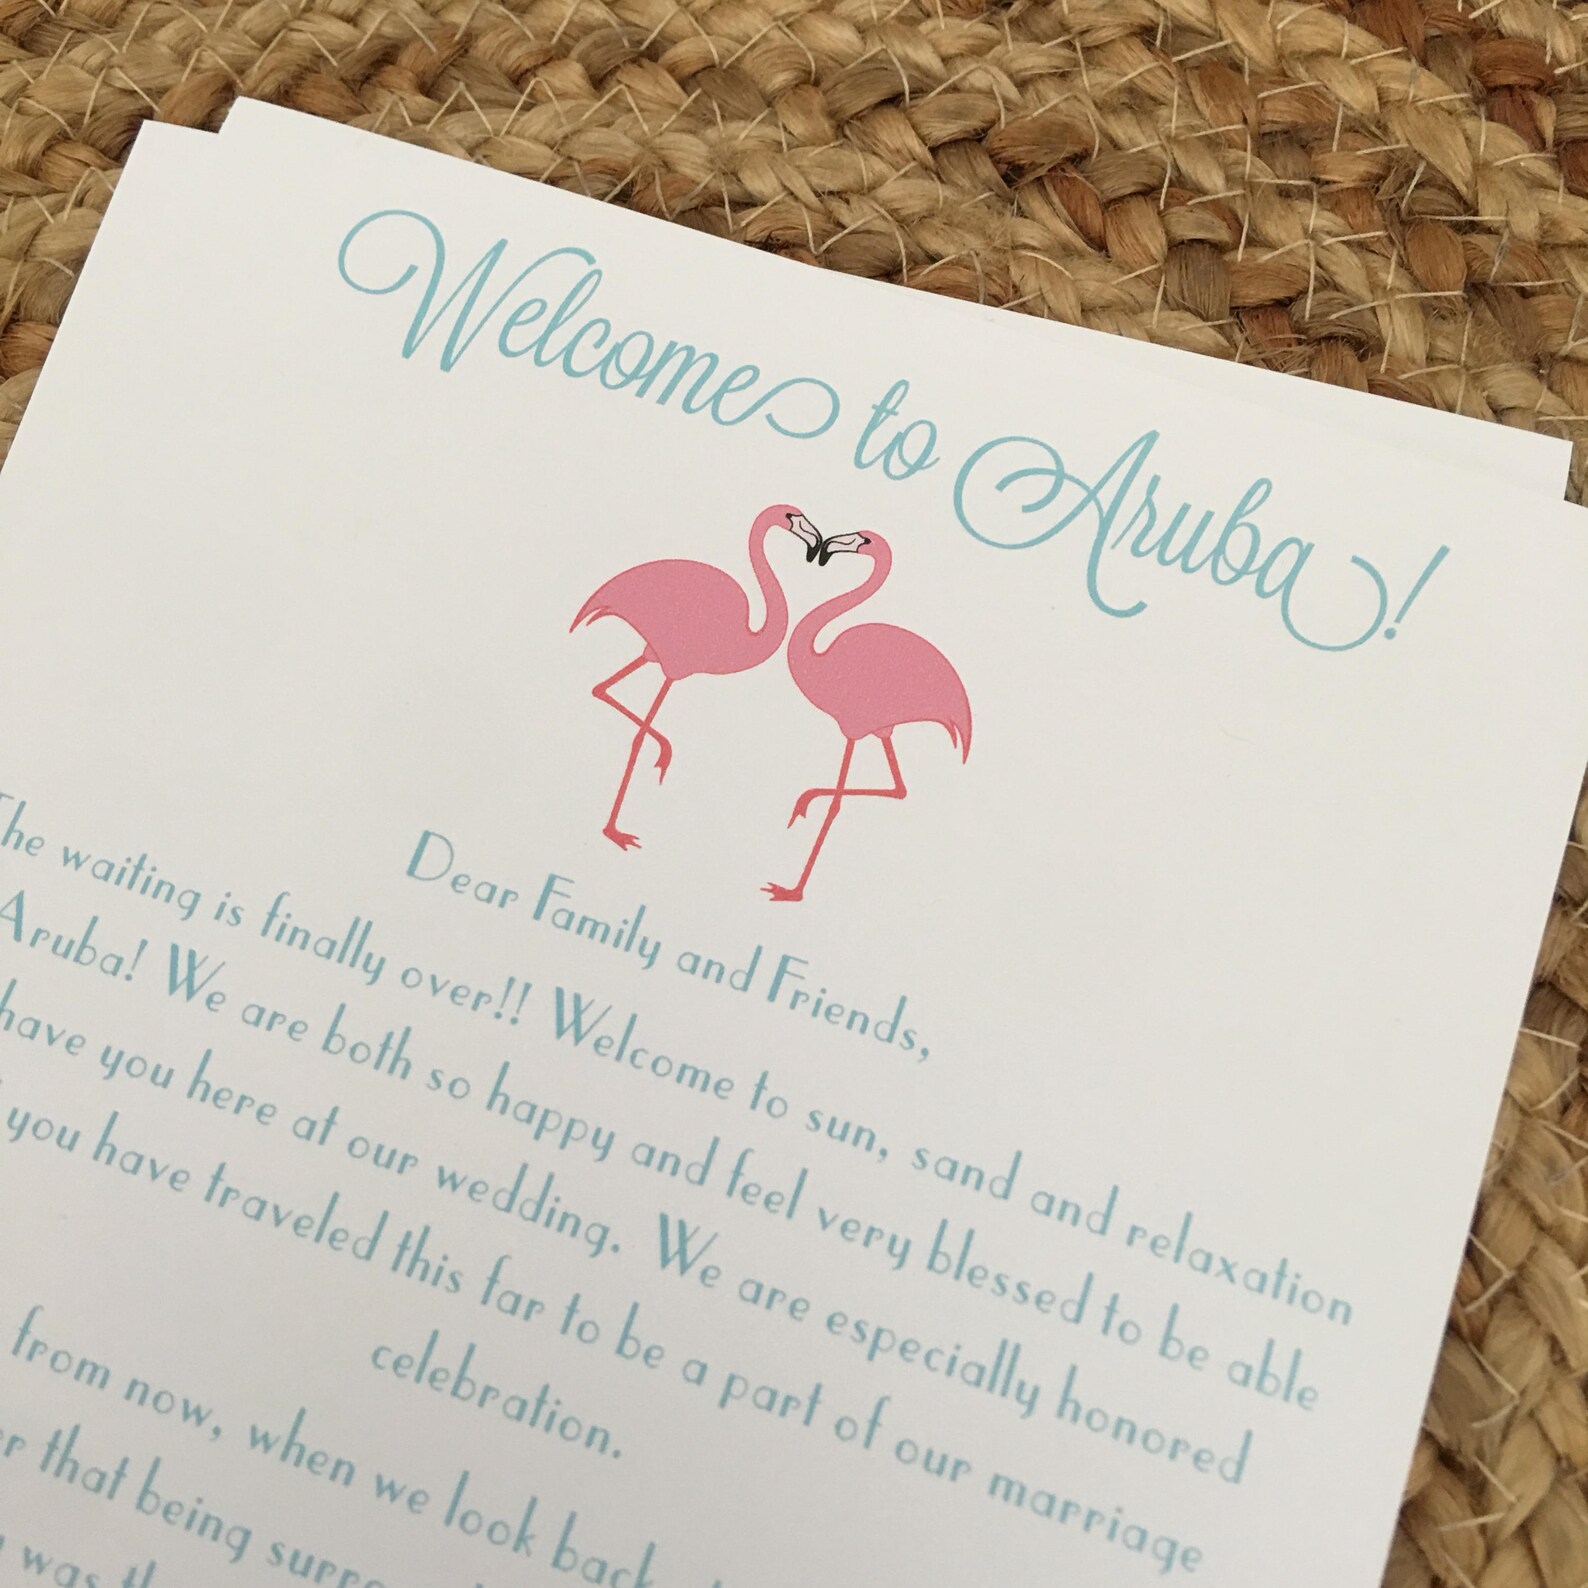 Welcome to Aruba!
Dear Family and Friends,
The waiting is finally over!! Welcome to sun, sand and relaxation
Aruba! We are both so happy and feel very blessed to be able
have you here at our wedding. We are especially honored
you have traveled this far to be a part of our marriage
celebration.
from now, when we look back
that being
was